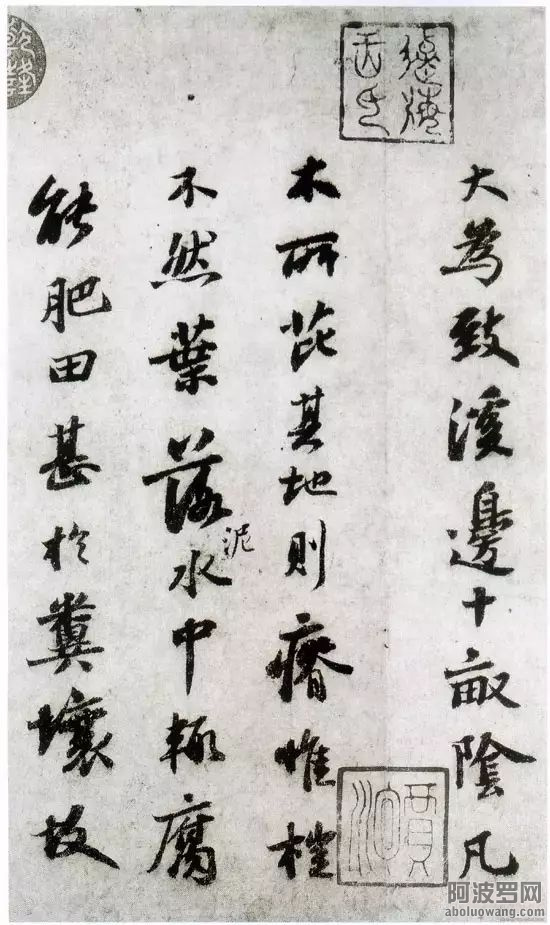 大為致溪邊十畝陰凡
木所芘其地則瘠惟榿
不然葉落泥水中輒腐
能肥田甚於糞壤故
阿波罗网
aboluowang.com